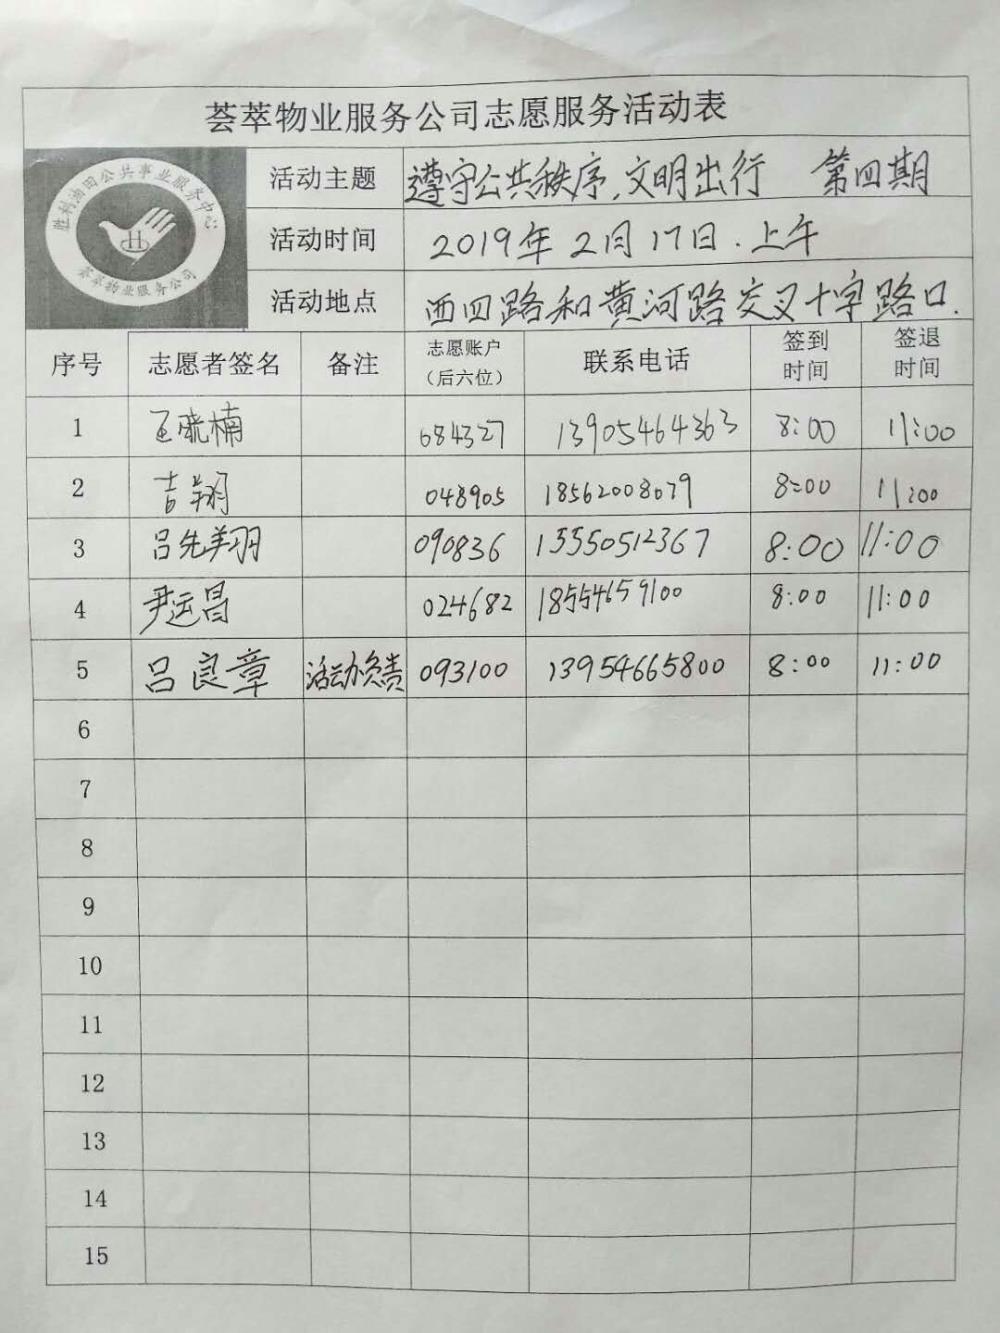 荟萃物业服务公司志愿服务活动表
胜利油田公共事业服务中心
荟萃物业服务公司
活动主题 遵守公共秩序,文明出行 第四期
活动时间 2019年2月17日.上午
活动地点 西四路和黄河路交叉十字路口.
序号 志愿者签名 备注 志愿账户(后六位) 联系电话 签到时间 签退时间
1 王晓楠 684327 13905464363 8:00 11:00
2 吉翔 048905 18562008079 8:00 11:00
3 吕先翔 090836 15550512367 8:00 11:00
4 尹运昌 024682 18554659100 8:00 11:00
5 吕良章 活动负责 093100 13954665800 8:00 11:00
6
7
8
9
10
11
12
13
14
15